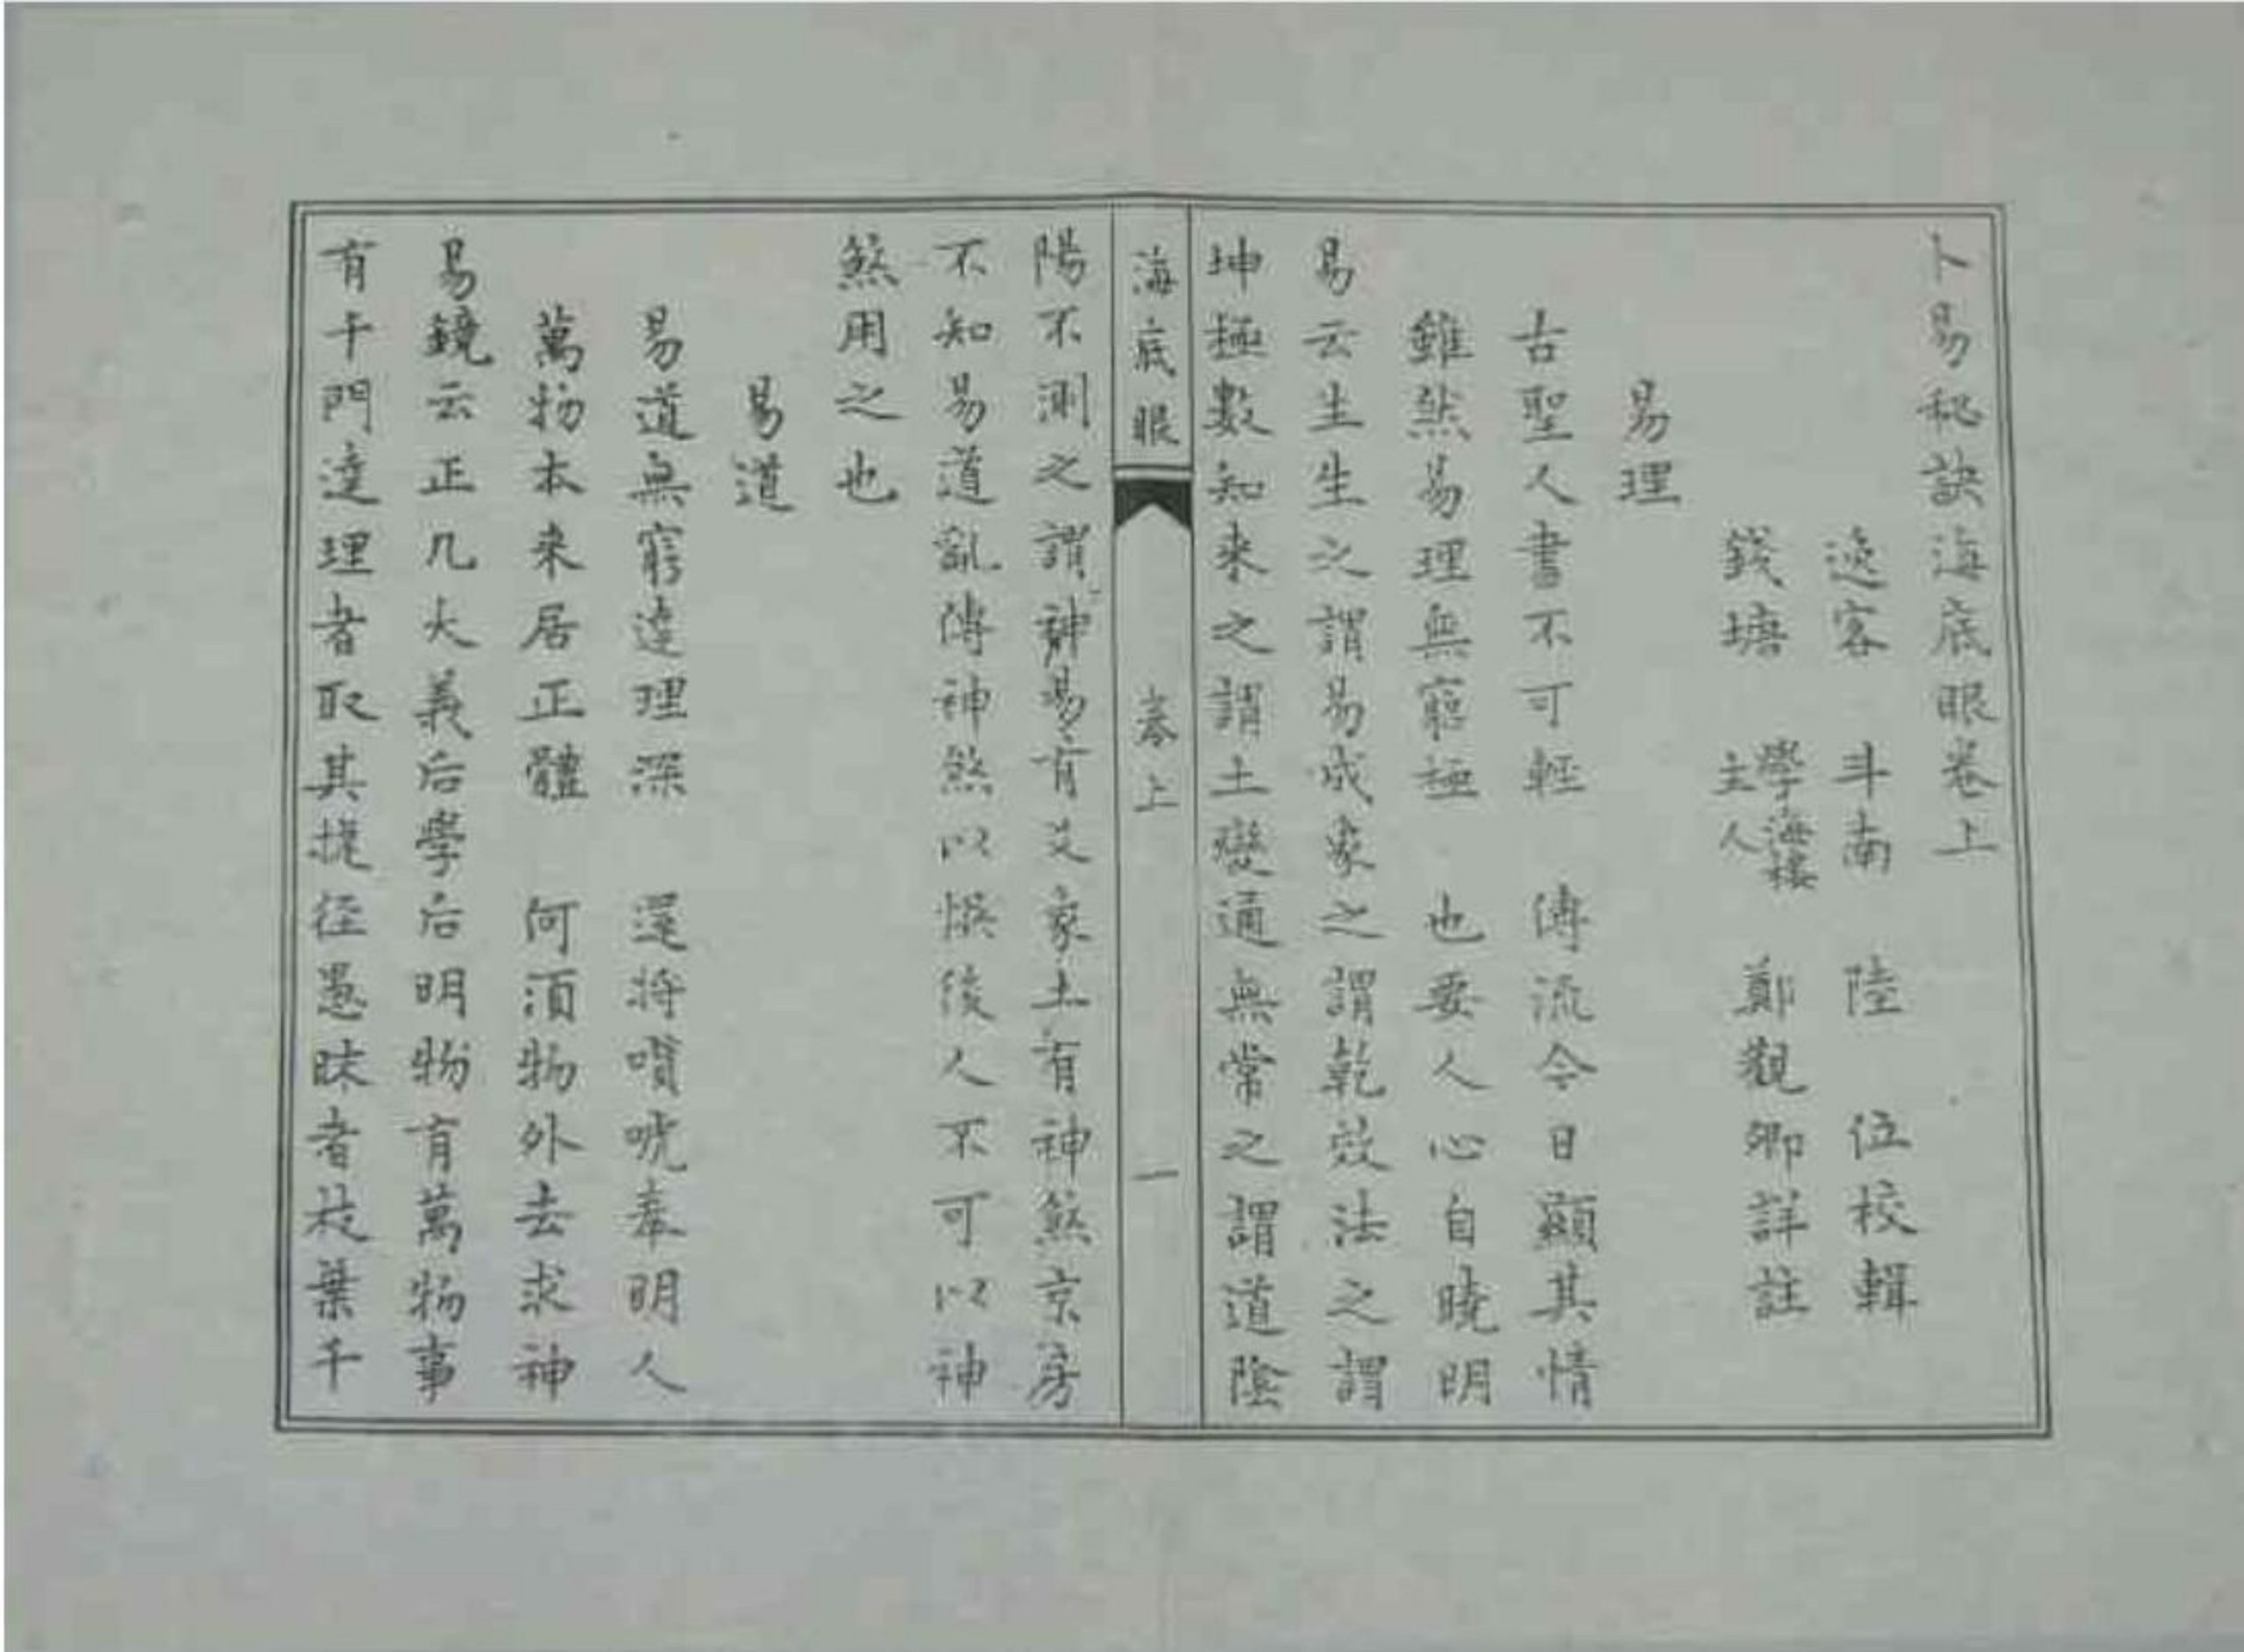 卜易秘訣海底眼卷上
逸客　斗南　陸　位校輯
錢塘　學海樓主人　鄭觀卿詳註
易理
古聖人書不可輕　傳流令日顯其情
雖然易理無窮極　也要人心自曉明
易云生生之謂易成象之謂乾效法之謂
坤極數知來之謂土變通無常之謂道陰
海底眼　卷上　一
陽不測之謂神易有爻象土有神煞京房
不知易道亂傳神煞以悞後人不可以神
煞用之也
易道
易道無窮達理深　還將嘖吮奉明人
萬物本來居正體　何須物外去求神
易鏡云正几大義后學后明物有萬物事
有千門達理者取其捷徑愚昧者枝葉千